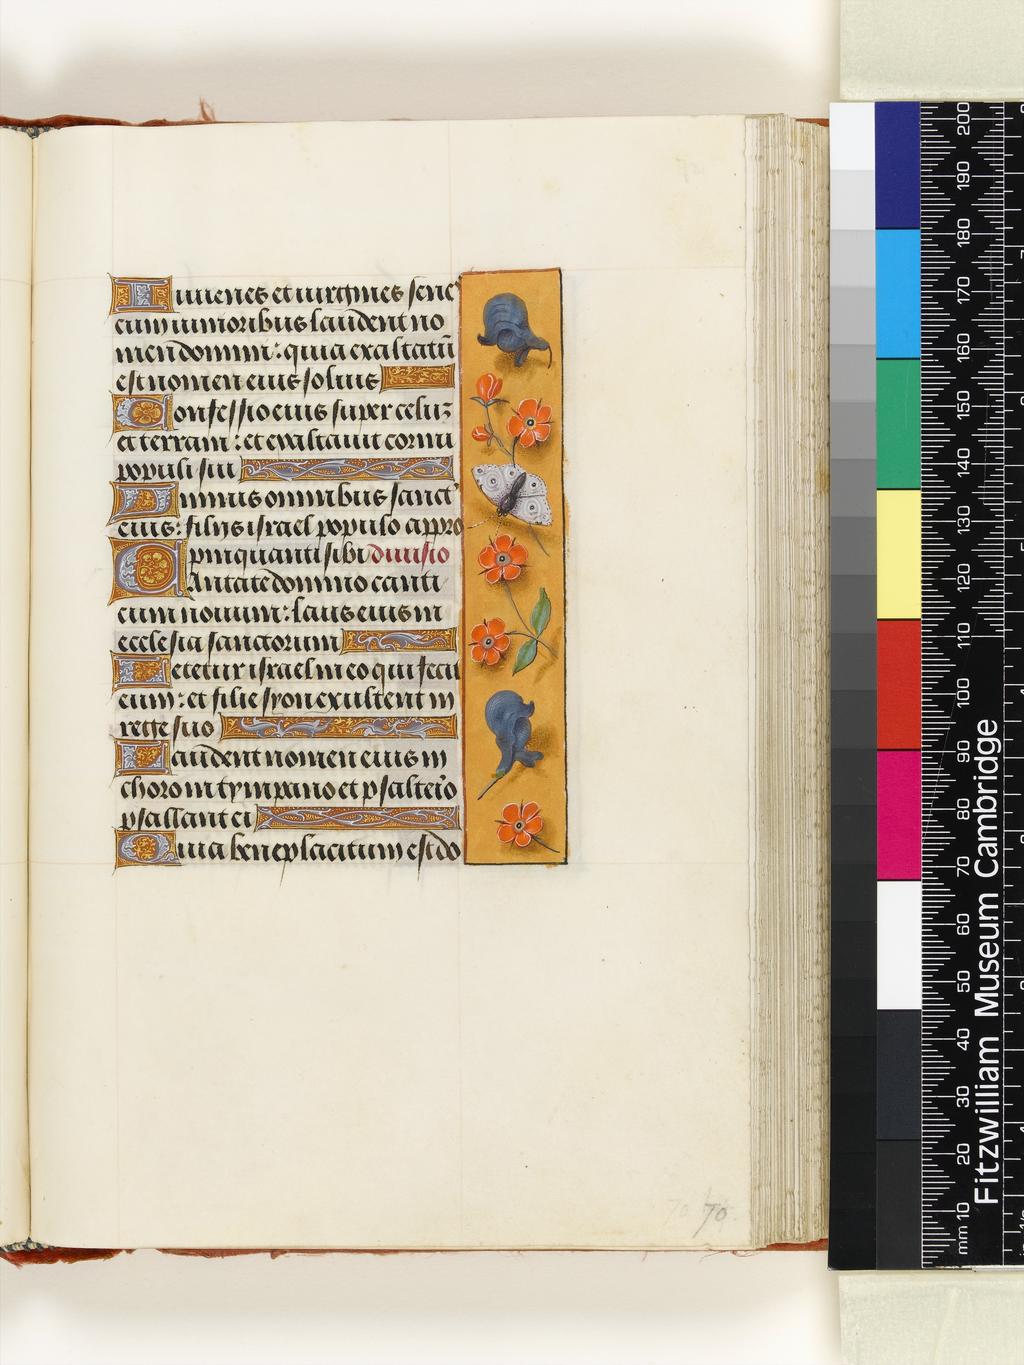 Iuuenes et uirgines sene
cum iunioribus laudent no
men domini: quia exaltatū
est nomen eius solius
Confessio eius super celuz
et terram: et exaltauit cornu
populi sui
Ymnus omnibus sanct'
eius: filijs israel populo appro
pinquanti sibi diuisio
Cantate domino canti
cum nouum: laus eius in
ecclesia sanctorum
Letetur israel in eo qui fecit
eum: et filie syon exultent in
rege suo
Laudent nomen eius in
choro in tympano et psalterio
psallant ei
Quia beneplacitum est do
70 70
Fitzwilliam Museum Cambridge
mm 10 20 30 40 50 60 70 80 90 100 110 120 130 140 150 160 170 180 190 200